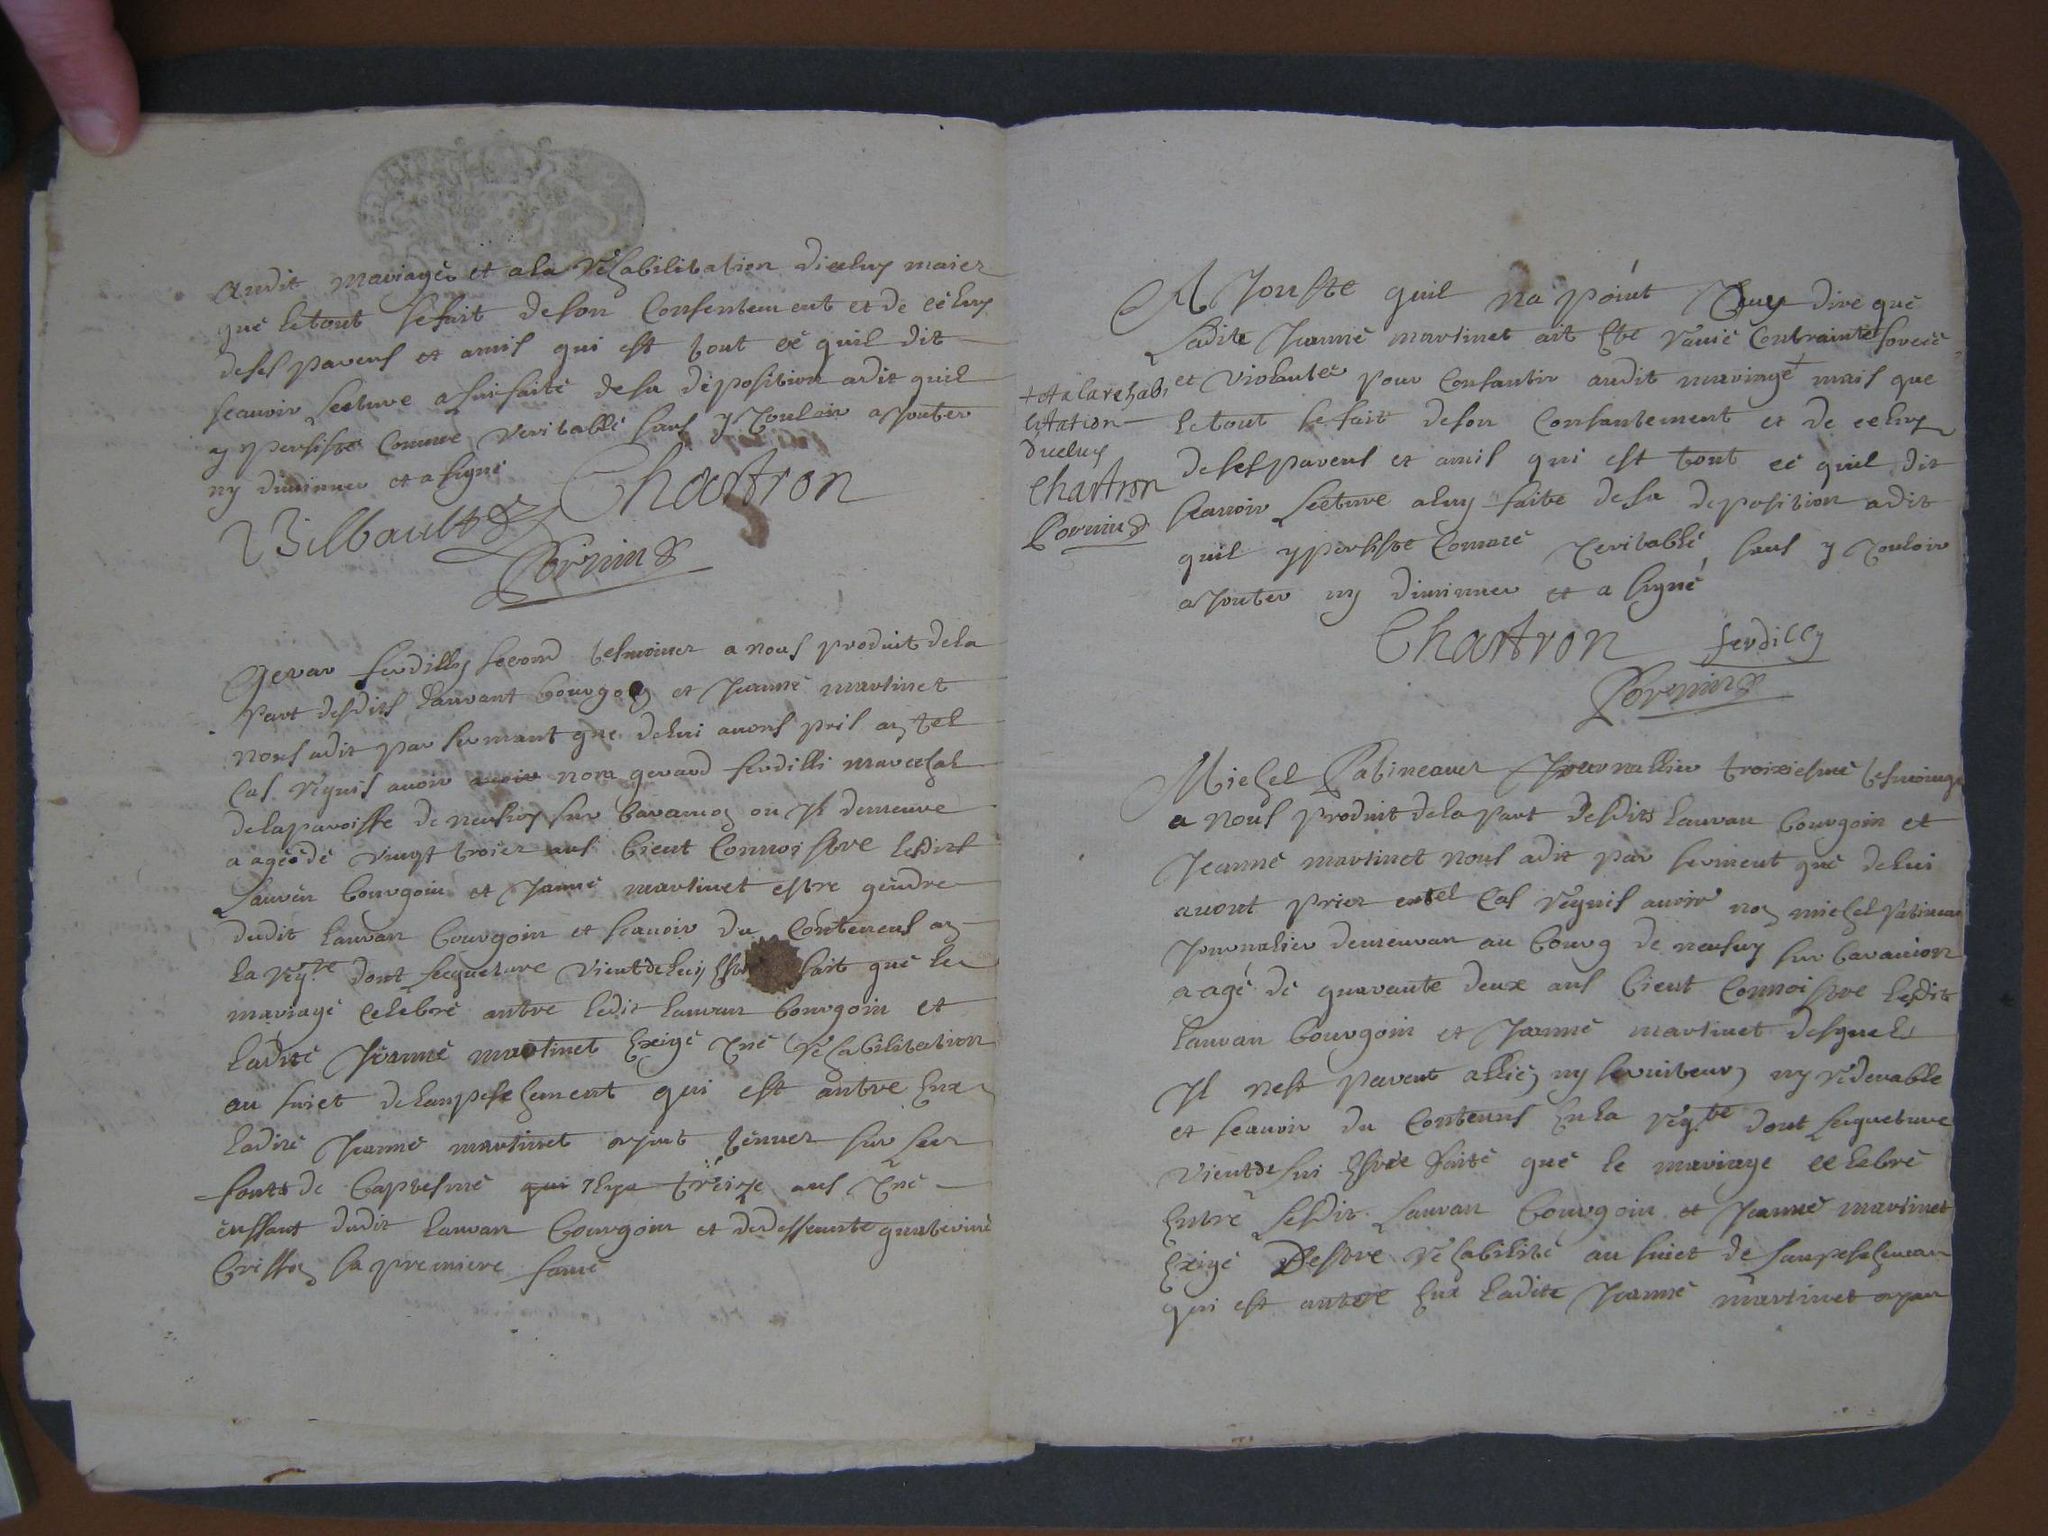 Audit mariagé et ala réhabilitation diceluy mais
qué le tout se fait de son Consentement et de celuy
de ses parens et amis qui est tout cé quil dit
scauoir lecture a lui faité de sa déposition adit quil
y persiste Comme véritablé sans y vouloir aJouter
ny diminuer et a signé
Billbault Chartron
Cornin
Gerar ferdilly second tesmoinct a nous produit de la
part desdits Lauvant bourgoin et Jeanné martinet
nous adit par sermant que de lui auons pris an tel
Cas requis auoir auoir nom gerard ferdilli marechal
de la paroisse de neufuy sur baranion ou Jl demeure
a agéé dé vingt troies ans bient Connoistre lesdits
Lauvan bourgoin et Janné martinet estre gendre
dudit Lauvan bourgoin et scauoir du Contenus an
la reqte dont lecqueture vient de luy fait qué le
mariagé Celebré antre ledit Lauvan bourgoin et
laditté Jeanné martinet Exigé vné réhabilitation
au suiet de Lanpeschement qui est antre Eux
ladité Jeanné martinet ayant ténuer sur les
fonts de baptesmé qui Jlya tréize ans vné
énffant dudit Lauvan bourgoin et de deffeunte quaterine
brisson sa premiere famé
AJousté quil na point ouy diré qué
Ladite Jeanné martinet ait Eté Contrainte forcéé
et violantée pour Consantir audit mariagé + mais que
le tout se fait de son Consantement et de celuy
de ses parens et amis qui est tout cé quil dit
scauoir Lécture a luy faite de sa deposition adit
quil y persiste Commé veritablé, sans y vouloir
aJouter ny diminuer et a signé
+ et a la rehabi
litation
diceluy
Chartron
Cornin
Chartron ferdilly
Cornin
Michel Patineauct Journallier troixiesmé tesmoinge
a nous produit de la part desdits Lauvan bourgoin et
Jeanné martinet nous adit par serment qué de lui
auont prier entel Cas réquis auoir nom michel patineau
Journalier demeuran au bourg de neufuy sur baranion
a agé dé quarante deux ans bient Connoistre lesdits
Lauvan bourgoin et Jeanné martinet desquels
Jl nest parent alliéz ny seruiteur ny rédeuable
et scauoir du Contenus En la reqte dont lecqueture
vient de lui Estre faité qué le mariage celebré
Entré lesdit Lauvan bourgoin et Jeanné martinet
Exigé Destre réhabilité au suiet de Lanpeschemean
qui est antre Eux ladite Jeanné martinet ayan